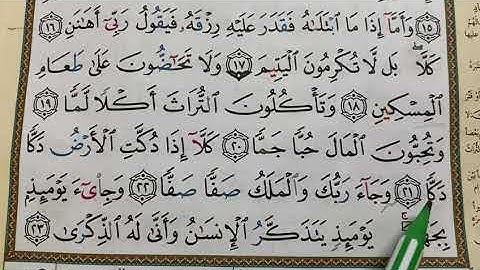 ۝١٥ وَأَمَّآ إِذَا مَا ٱبْتَلَىٰهُ فَقَدَرَ عَلَيْهِ رِزْقَهُۥ فَيَقُولُ رَبِّىٓ أَهَٰنَنِ ۝١٦
كَلَّا ۖ بَل لَّا تُكْرِمُونَ ٱلْيَتِيمَ ۝١٧ وَلَا تَحَٰٓضُّونَ عَلَىٰ طَعَامِ
ٱلْمِسْكِينِ ۝١٨ وَتَأْكُلُونَ ٱلتُّرَاثَ أَكْلًا لَّمًّا ۝١٩
وَتُحِبُّونَ ٱلْمَالَ حُبًّا جَمًّا ۝٢٠ كَلَّآ إِذَا دُكَّتِ ٱلْأَرْضُ دَكًّا
دَكًّا ۝٢١ وَجَآءَ رَبُّكَ وَٱلْمَلَكُ صَفًّا صَفًّا ۝٢٢ وَجِا۟ىٓءَ يَوْمَئِذٍۭ
يَوْمَئِذٍ يَتَذَكَّرُ ٱلْإِنسَٰنُ وَأَنَّىٰ لَهُ ٱلذِّكْرَىٰ ۝٢٣